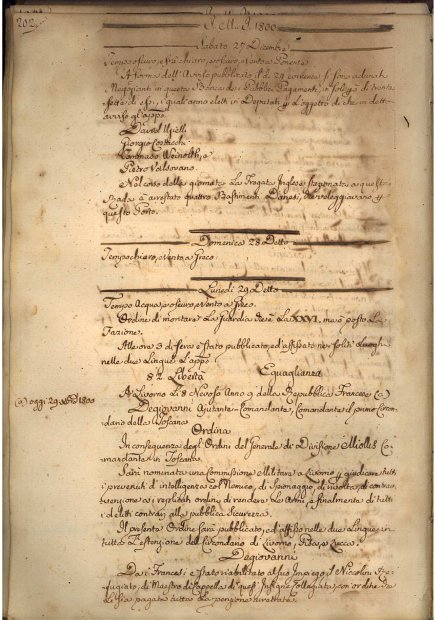 202
Nell' A. 1800
Sabato 27 Dicembre
Tempo oscuro, e più chiaro, e oscuro, e vento a Ponente
A forma dell' Avviso pubblicato il dì 24 corrente si sono adunati
Negozianti in questo Banco de' Pubblici Pagamenti, in
sotto di essi, i quali anno eletti in Deputati p l'oggetto di che in detto
avviso gl'appo
David
Giorgio
Tommaso
Pietro Valsovano
Nel corso della giornata la Fregata Inglese stazionata a questa
Rada à arrestato quattro Bastimenti Danesi, che veleggiavano p
questo Porto.
Domenica 28 Detto
Tempo chiaro, e vento a Greco
Lunedì 29 Detto
Tempo Acqua, e oscuro, e vento a Greco.
Ordine di montare la Guardia
Fazione.
Alle ore 3 di sera è stato pubblicato, ed affisso ne' soliti Luoghi
nelle due Lingue l'appo
82. Libertà Eguaglianza
(a) oggi 29 Xbre 1800
A Livorno li 8 Nevoso Anno 9 della Repubblica Francese (a)
Degiovanni Ajutante-Comandante, Comandante il primo Circon-
dario della Toscana
Ordina
In conseguenza degli Ordini del Generale di Divisione Miollis Co-
mandante in Toscana.
Sarà nominata una Commissione Militare a Livorno p giudicare tutti
i prevenuti d'intelligenza col Nemico, di Spionaggio, di rivolta, di contrav-
venzione a' replicati ordini di rendere le Armi, e finalmente di tutti
i delitti contrarj alla pubblica Sicurezza.
Il presente Ordine sarà pubblicato, ed affisso nelle due Lingue in
tutta l'estenzione del Circondario di Livorno, Pisa, e Lucca.
Degiovanni
Da i Francesi è stato riabilitato al suo Impiego, il Niccolini
di Maestro di Cappella di quest' Insigne Collegiata, con ordine che
li sia pagata tutta la pensione